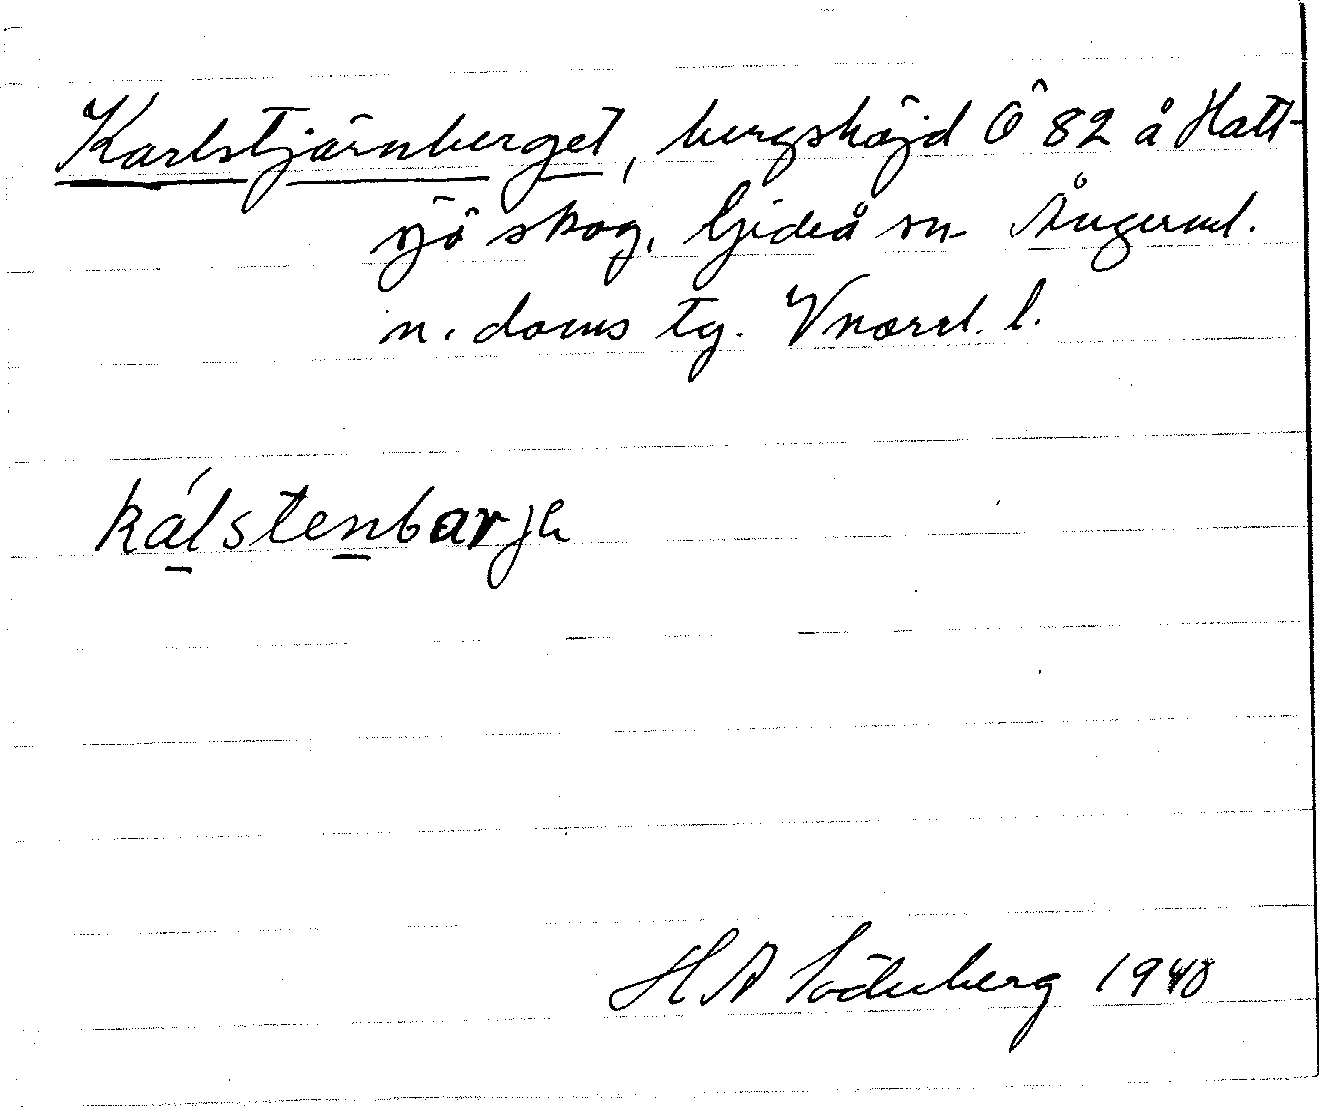 Karlstjärnberget, bergshöjd Ö 82 å Hatt-
sjö skog, Gideå sn Ångerml.
n. doms tg. Vnorrl. l.
kálstenbarjə
H A Söderberg 1940